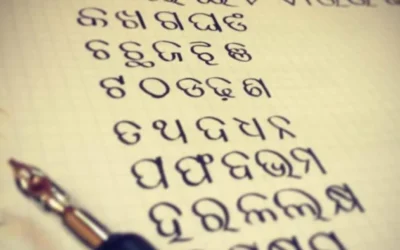 କ ଖ ଗ ଘ ଙ
ଚ ଛ ଜ ଝ ଞ
ଟ ଠ ଡ ଢ ଣ
ତ ଥ ଦ ଧ ନ
ପ ଫ ବ ଭ ମ
ହ ର ଳ ଲ କ୍ଷ